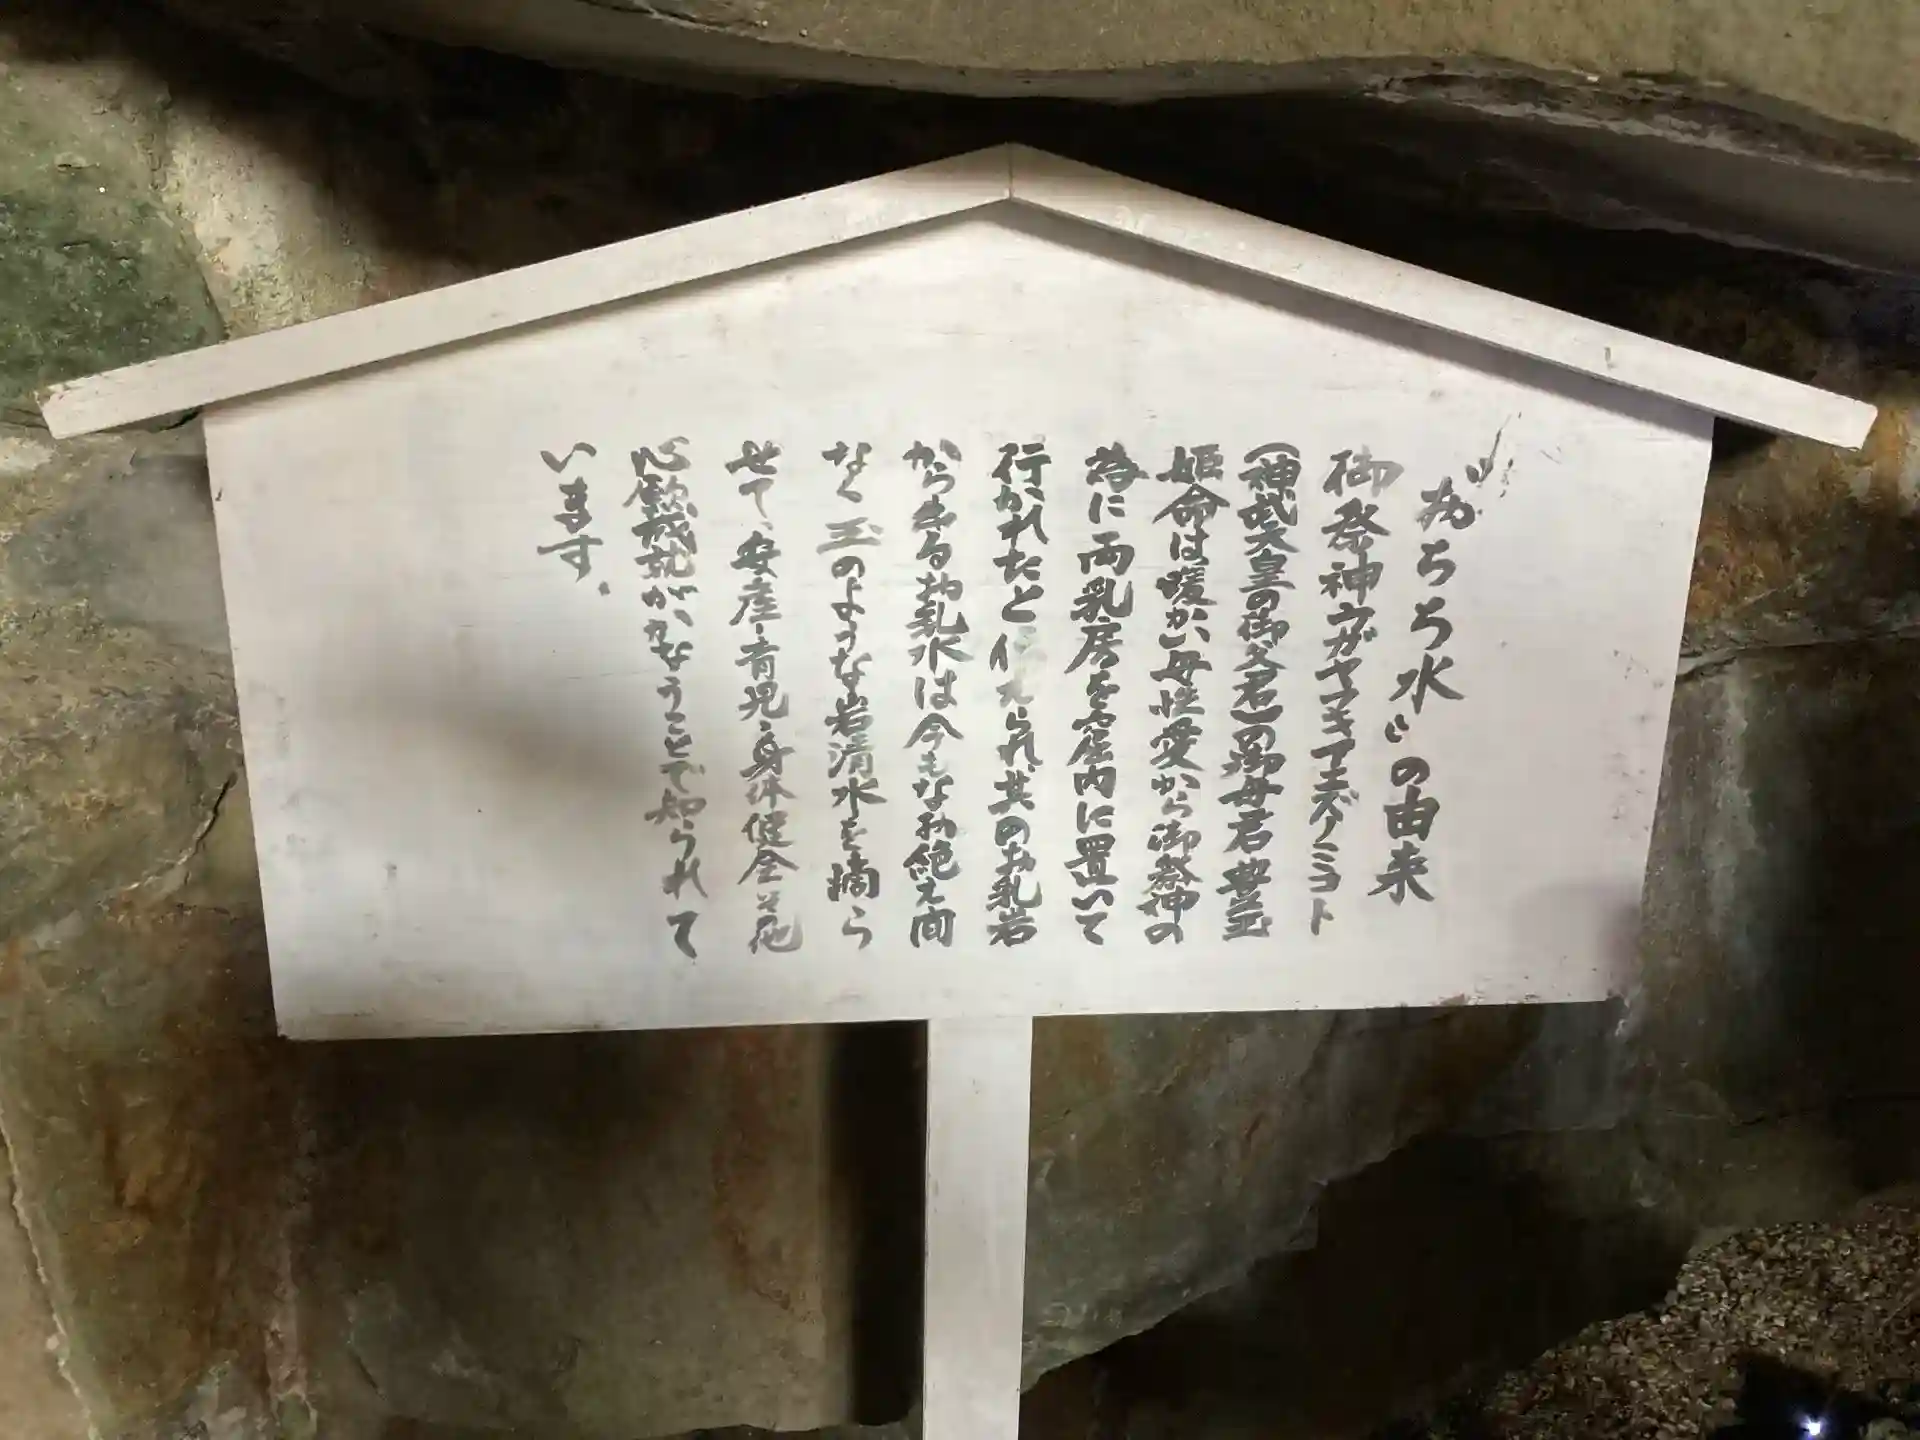 "おちち水"の由来
御祭神ウガヤフキアエズノミコト
(神武天皇の御父君)の御母君 豊玉
姫命は暖かい母性愛から御祭神の
為に両乳房を窟内に置いて
行かれたと伝えられ、其のお乳岩
から出るお乳水は今もなお絶え間
なく玉のような岩清水を滴ら
せて、安産・育児・身体健全その他
心願成就がかなうことで知られて
います。